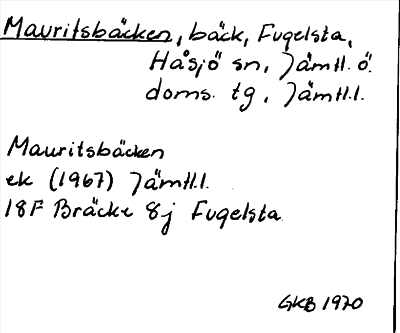 Mauritsbäcken, bäck, Fugelsta,
Håsjö sn, Jämtl. ö.
doms. tg, Jämtl.l.
Mauritsbäcken
ek (1967) Jämtl.l.
18F Bräcke 8j Fugelsta
GKB 1970